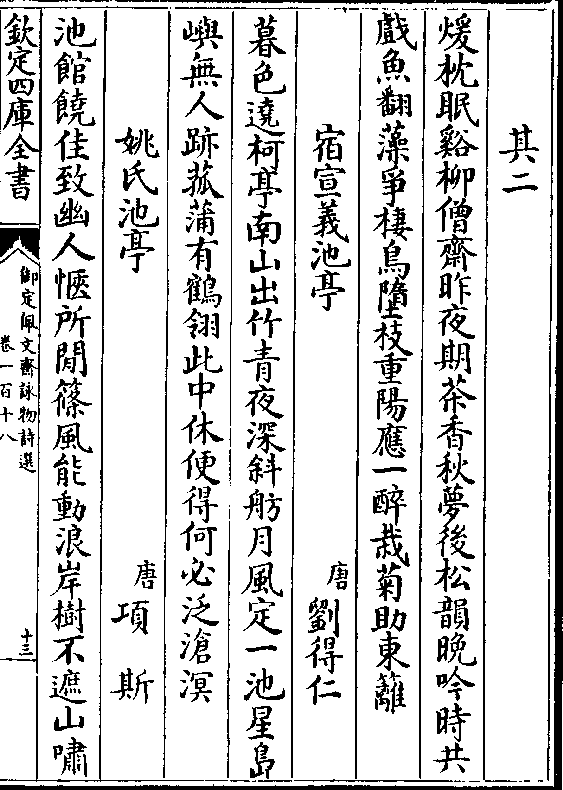 其二
煖枕眠谿柳僧齋昨夜期茶香秋夢後松韻晚吟時共
戲魚翻藻爭棲鳥墮枝重陽應一醉栽菊助東籬
宿宣義池亭
唐 劉得仁
暮色遶柯亭南山出竹青夜深斜舫月風定一池星島
嶼無人跡菰蒲有鶴翎此中休便得何必泛滄溟
姚氏池亭
唐 項斯
池館饒佳致幽人愜所閒篠風能動浪岸樹不遮山嘯
欽定四庫全書
御定佩文齋詠物詩選
卷一百十八
十三